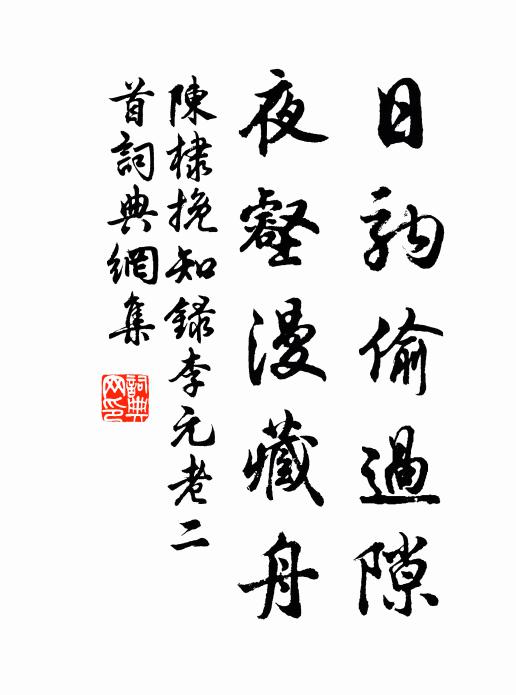 日驹偷過隙
夜壑漫藏舟
陳棣挽知録李元老二
首詞典網集
詞典网印